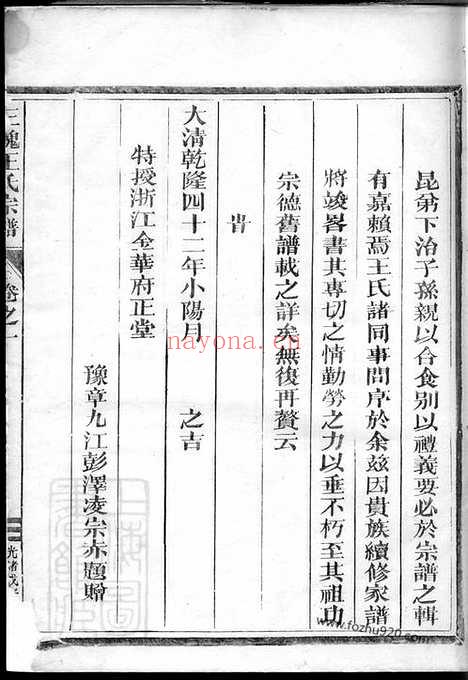 昆弟下治子孫親以合食別以禮義要必於宗譜之輯
有嘉賴焉王氏諸同事問序於余茲因貴族續修家譜
將竣畧書其專切之情勤勞之力以垂不朽至其祖功
宗德舊譜載之詳矣無復再贅云
旹
大清乾隆四十二年小陽月 之吉
特授浙江金華府正堂
豫章九江彭澤凌宗亦題贈
三槐王氏宗譜
卷之一
光緒戊子
nayona.cn
www.fozhu920.com